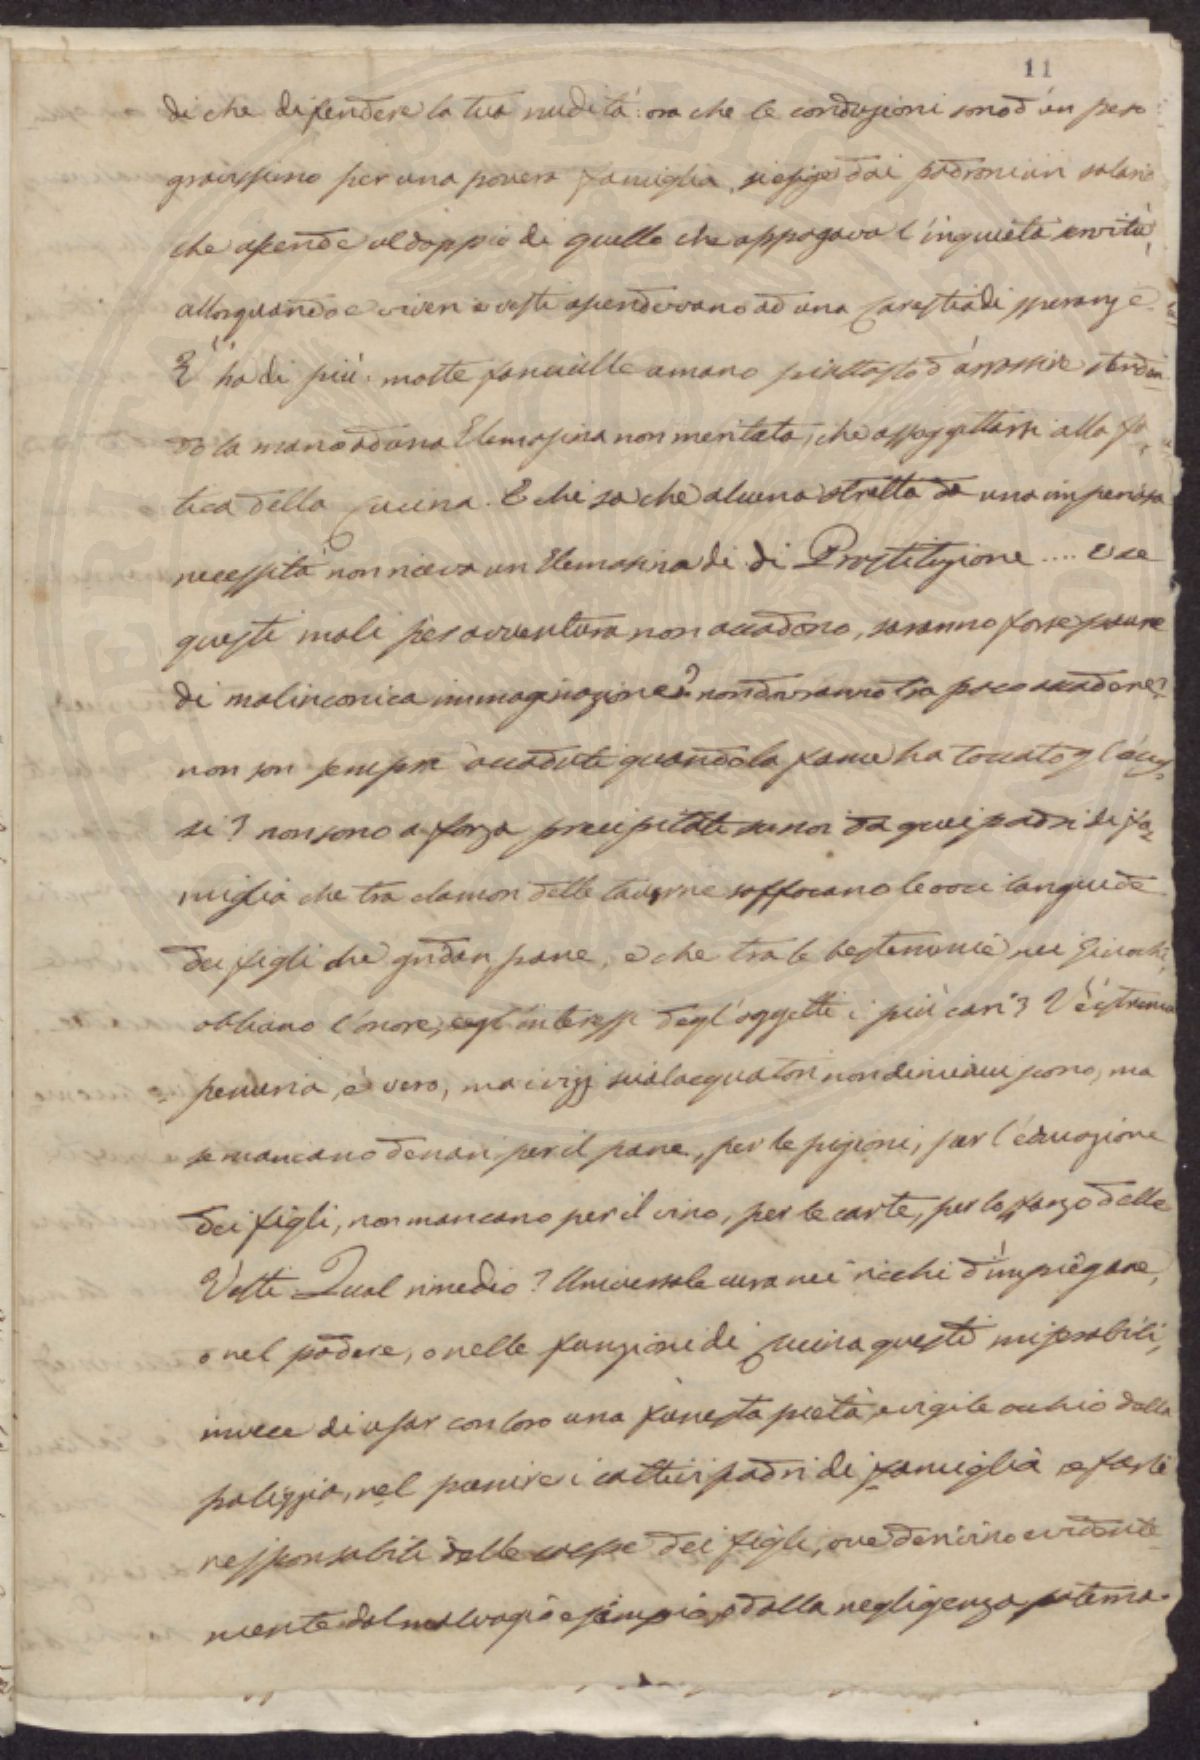 11
di che difendere la tua nudità: ora che le conduzioni sono d'un peso
gravissimo per una povera famiglia, si esige dai padroni un salario
che ascende al doppio di quello che appagava l'inquieta servitù,
allorquando e viveri e vesti ascendevano ad una carestia di speranze
V'ha di più: molte fanciulle amano piuttosto d'arrossire stenden
do la mano ad una Elemosina non meritata, che assoggettarsi alla fa
tica della cucina. E chi sa che alcuna stretta da una imperiosa
necessità non riceva un Elemosina di di Prostituzione .... E se
questi mali per avventura non accadono, saranno forse paure
di malinconica immaginazione? non dovranno tra poco accadere?
non son sempre accaduti quando la fame ha toccato gl'ecces
si? non sono a forza precipitate da quei padri di fa
miglia che tra clamori delle taverne soffocano le voci languide
dei figli che gridan pane, e che tra le bestemmie nei Giuochi
obliano l'onore, e gl'interessi degl'oggetti i più cari? V'è estrema
penuria, è vero, ma i vizj scialacquatori non diminuiscono, ma
se mancano denari per il pane, per le pigioni, per l'educazione
dei figli, non mancano per il vino, per le carte, per lo sfarzo delle
Vesti Qual rimedio? Universale cura nei ricchi d'impiegare,
o nel podere, o nelle funzioni di cucina questi miserabili,
invece di usar con loro una funesta pietà, e vigile occhio della
polizzia, nel punire i cattivi padri di famiglia e farli
responsabili delle colpe dei figli, ove derivino evidente
mente dal malvagio esempio, e dalla negligenza paterna.